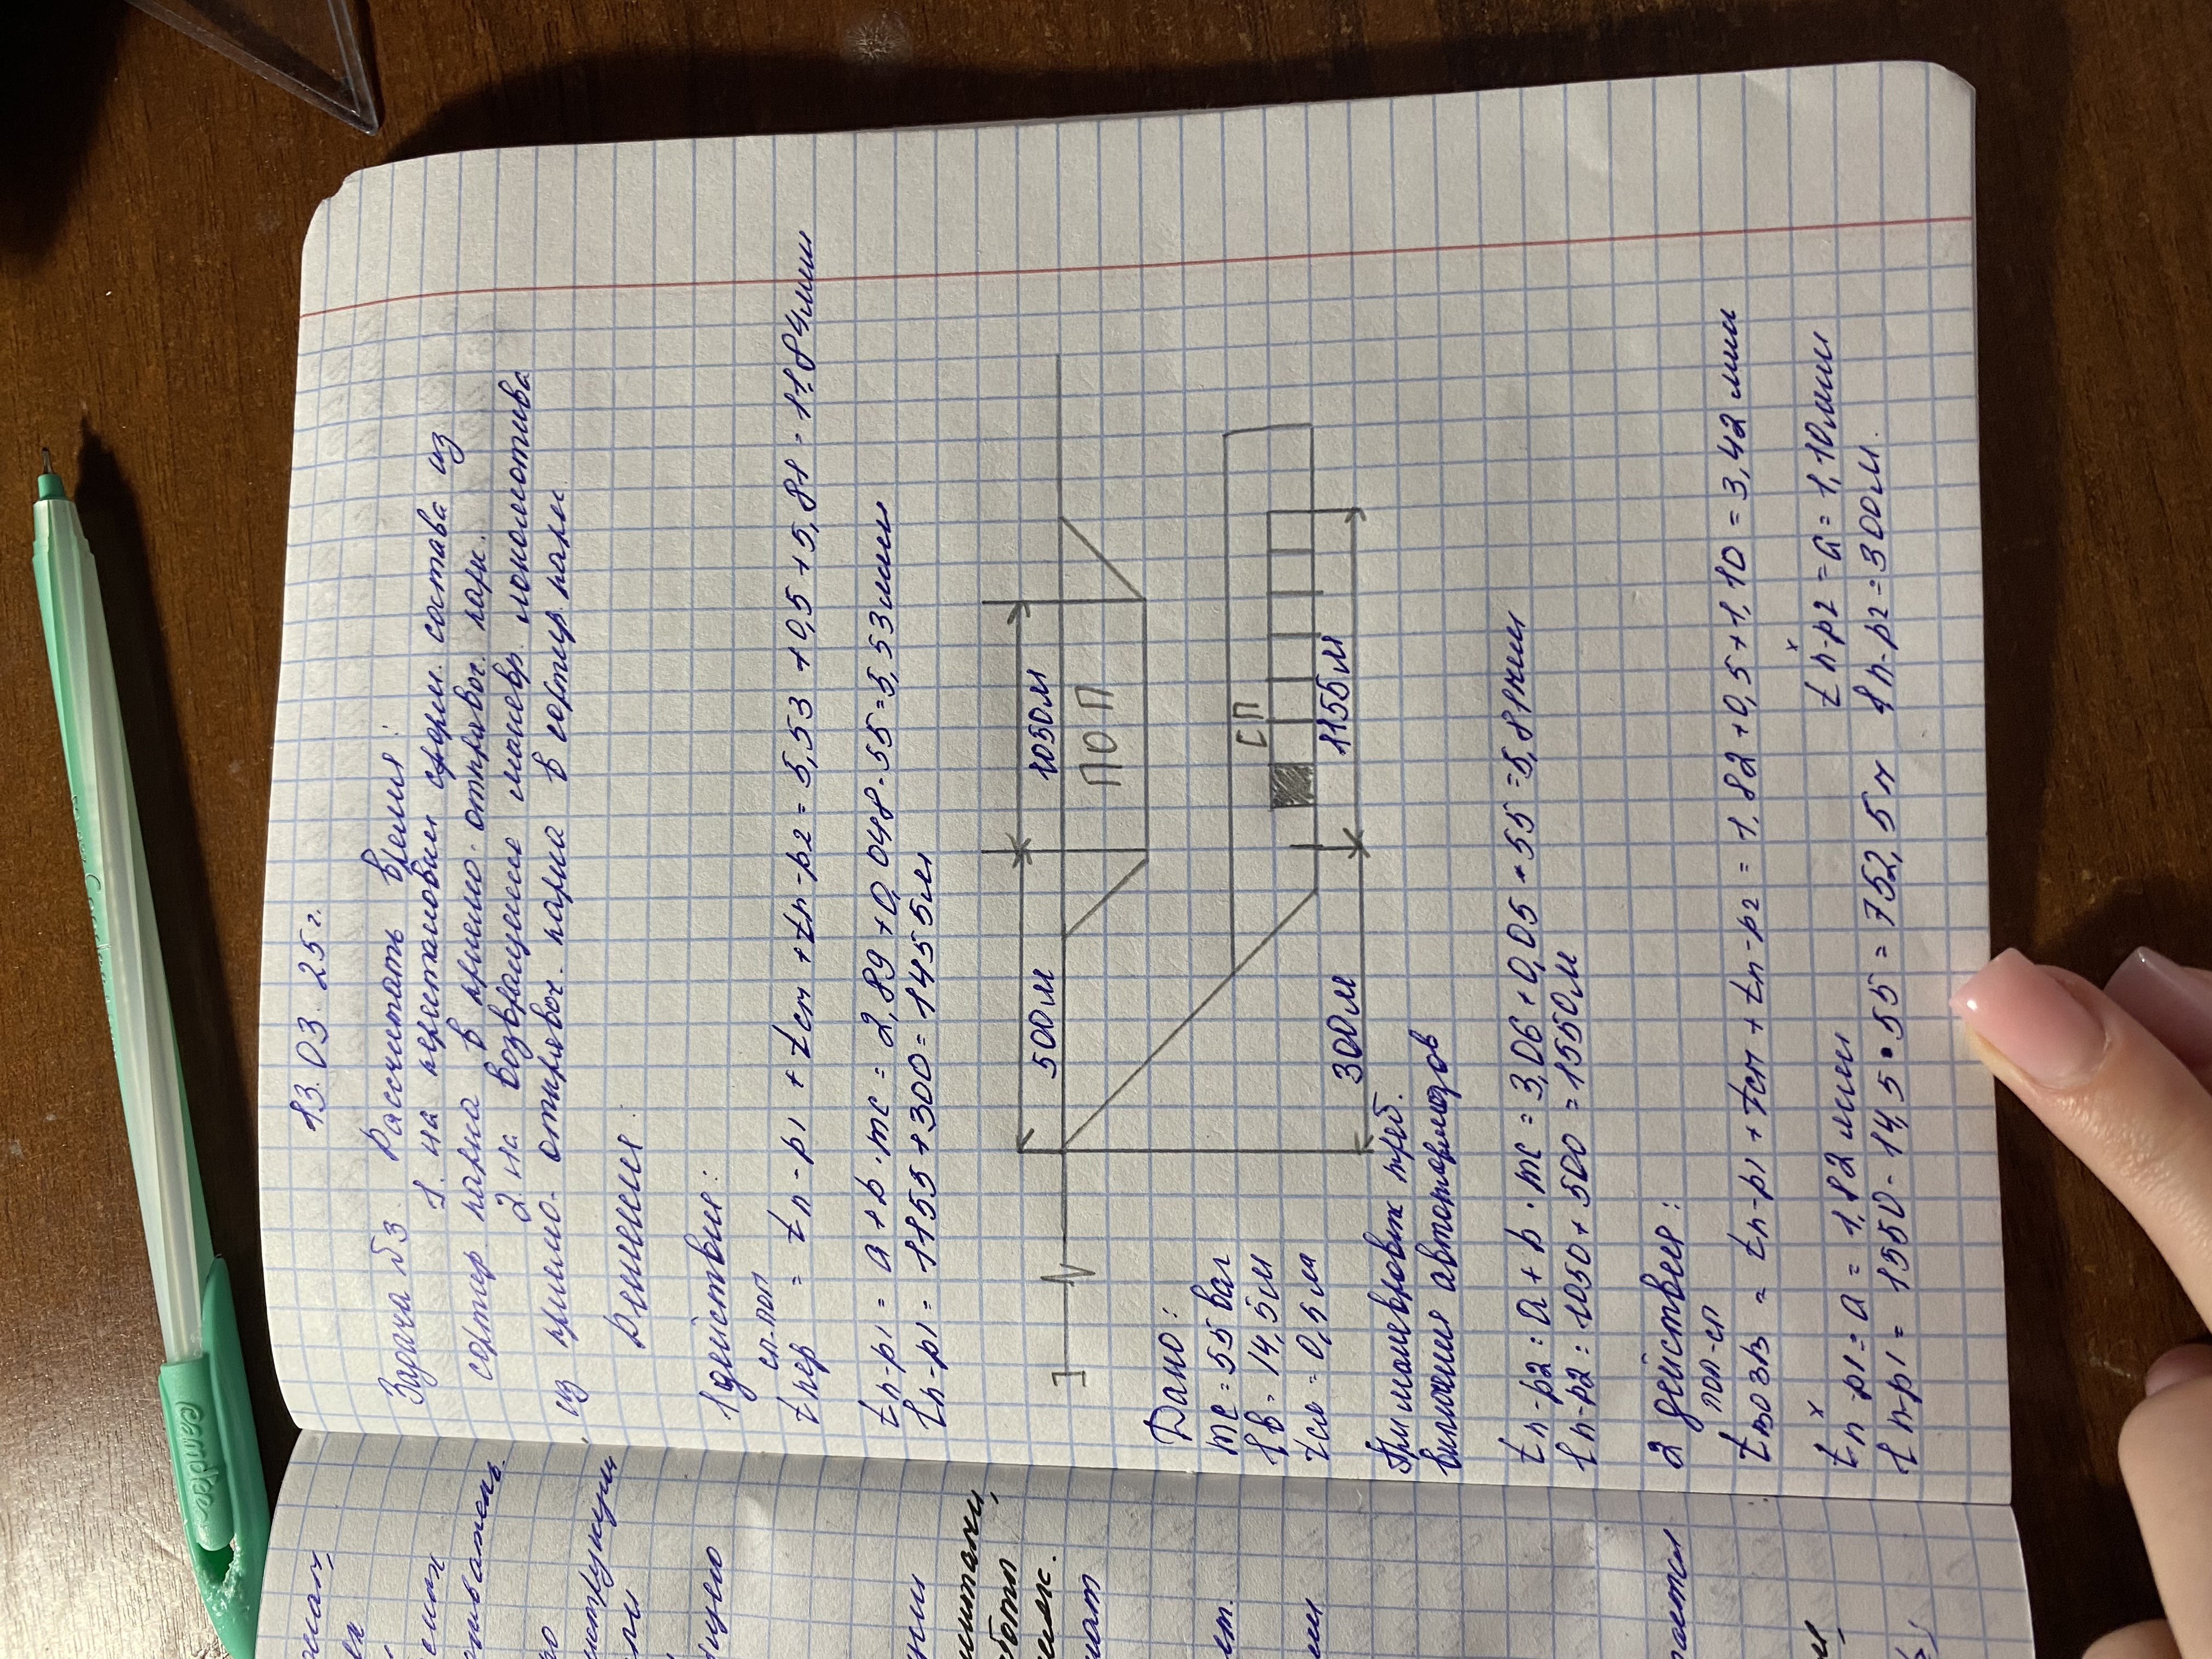 13.03.25г.
Задача №3. Рассчитать время:
1. на перестановки сформ. состава из
сортир. парка в приемо-отправоч. парк.
2. на возвращение маневр. локомотива
из приемо-отправоч. парка в сортир. парк.
решение:
1 действие:
сп-поп
tпер = tп-р1 + tст + tп-р2 = 5,53 + 0,5 + 5,81 = 11,84 мин
tп-р1 = a + b · mc = 2,89 + 0,048 · 55 = 5,53 мин
lп-р1 = 1155 + 300 = 1455м
500м
1050м
ПОП
I
N
СП
300м
1155м
Дано:
mc = 55 ваг
lв = 14,5м
tсм = 0,5 м
При маневровой треб.
включения автотормозов
tп-р2 = a + b · mc = 3,06 + 0,05 · 55 = 5,81 мин
lп-р2 = 1050 + 500 = 1550м
2 действие:
поп-сп
tвозв = tп-р1 + tст + tп-р2 = 1,82 + 0,5 + 1,10 = 3,42 мин
tп-р1 = a = 1,82 мин tп-р2 = a = 1,10 мин
lп-р1 = 1550 - 14,5 · 55 = 752,5 м lп-р2 = 300м.
candee